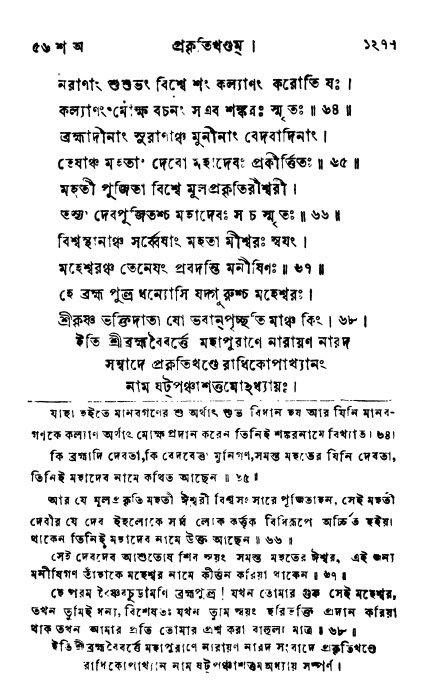 ৫৬ শ অ প্রকৃতিখণ্ডম্ ।
নরাণাং শুশুভং বিশ্বে শং কল্যাণং করোতি যঃ ।
কল্যাণং মোক্ষ বচনং স এব শঙ্করঃ স্মৃতঃ ॥ ৬৪ ॥
ব্রহ্মাদীনাং সুরাণাঞ্চ মুনীনাং বেদবাদিনাং ।
তেষাঞ্চ মহতাং দেবো মহাদেবঃ প্রকীর্ত্তিতঃ ॥ ৬৫ ॥
মহতী পূজিতা বিশ্বে মূলপ্রকৃতিরীশ্বরী ।
তস্যা দেবপূজিতশ্চ মহাদেবঃ স চ স্মৃতঃ ॥ ৬৬ ॥
বিশ্বস্থানাঞ্চ সর্ব্বেষাং মহতা মীশ্বরঃ স্বয়ং ।
মহেশ্বরঞ্চ তেনেমং প্রবদন্তি মনীষিণঃ ॥ ৬৭ ॥
হে ব্রহ্ম পুত্র ধন্যোসি যদ্গুরুশ্চ মহেশ্বরঃ ।
শ্রীকৃষ্ণ ভক্তিদাতা যো ভবান্‌পৃচ্ছতি মাঞ্চ কিং । ৬৮ ।
ইতি শ্রীব্রহ্মবৈবর্ত্তে মহাপুরাণে নারায়ণ নারদ
সম্বাদে প্রকৃতিখণ্ডে রাধিকোপাখ্যানং
নাম ষট্‌পঞ্চাশত্তমোঽধ্যায়ঃ ।
যাহা হইতে মানবগণের শু অর্থাৎ শুভ বিধান হয় আর যিনি মানব-
গণকে কল্যাণ অর্থাৎ মোক্ষ প্রদান করেন তিনিই শঙ্করনামে বিখ্যাত । ৬৪।
কি ব্রহ্মাদি দেবতা, কি বেদবেত্তা মুনিগণ, সমস্ত মহতের যিনি দেবতা,
তিনিই মহাদেব নামে কথিত আছেন ॥ ৬৫ ॥
আর যে মূলপ্রকৃতি মহতী ঈশ্বরী বিশ্বসংসারে পূজিতাহন, সেই মহতী
দেবীর যে দেব ইহলোকে সর্ব্ব লোক কর্তৃক বিধিরূপে অর্চ্চিত হইয়া
থাকেন তিনিই মহাদেব নামে উক্ত আছেন ॥ ৬৬ ॥
সেই দেবদেব আশুতোষ শিব স্বয়ং সমস্ত মহতের ঈশ্বর, এই জন্য
মনীষিগণ তাঁহাকে মহেশ্বর নামে কীর্ত্তন করিয়া থাকেন ॥ ৬৭ ॥
হে পরম বৈষ্ণবচূড়ামণি ব্রহ্মপুত্র ! যখন তোমার গুরু সেই মহেশ্বর,
তখন তুমিই ধন্য, বিশেষতঃ যখন তুমি স্বয়ং হরিভক্তি প্রদান করিয়া
থাক তখন আমার প্রতি তোমার প্রশ্ন করা বাহুল্য মাত্র ॥ ৬৮ ॥
ইতি শ্রীব্রহ্মবৈবর্ত্তে মহাপুরাণে নারায়ণ নারদ সংবাদে প্রকৃতিখণ্ডে
রাধিকোপাখ্যান নাম ষট্‌পঞ্চাশত্তম অধ্যায় সম্পূর্ণ ।